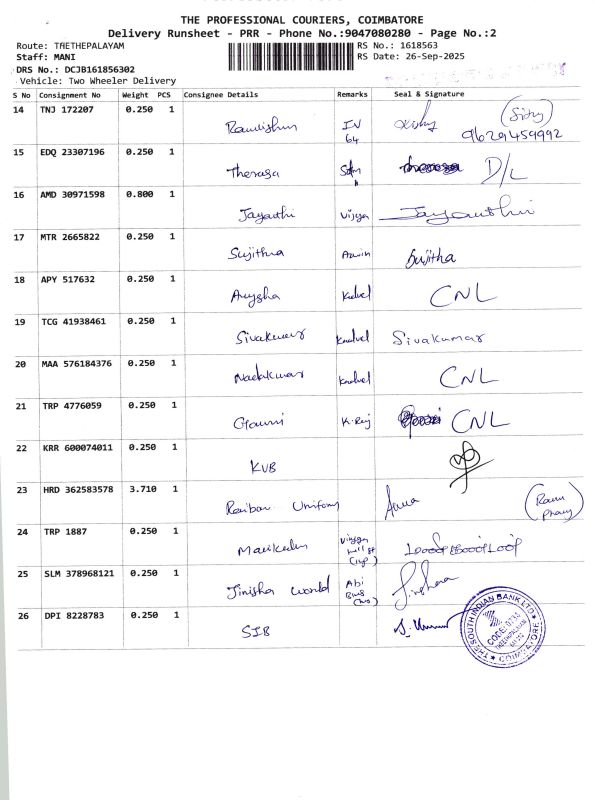 THE PROFESSIONAL COURIERS, COIMBATORE
Delivery Runsheet - PRR - Phone No.:9047080280 - Page No.:2
Route: TRETHEPALAYAM
RS No.: 1618563
Staff: MANI
RS Date: 26-Sep-2025
DRS No.: DCJB161856302
Vehicle: Two Wheeler Delivery
S No Consignment No Weight PCS Consignee Details Remarks Seal & Signature
14 TNJ 172207 0.250 1 IN 64
9629459992
15 EDQ 23307196 0.250 1 Therasa D/L
16 AMD 30971598 0.800 1 Jayanthi Vijya Jayanthi
17 MTR 2665822 0.250 1 Sujithra Sujitha
18 APY 517632 0.250 1 CNL
19 TCG 41938461 0.250 1 Sivakumar Sivakumar
20 MAA 576184376 0.250 1 CNL
21 TRP 4776059 0.250 1 Gowri K.Raj CNL
22 KRR 600074011 0.250 1 KVB
23 HRD 362583578 3.710 1 Uniforms
24 TRP 1887 0.250 1
25 SLM 378968121 0.250 1 Jinisha World Abi
26 DPI 8228783 0.250 1 SIB
THE SOUTH INDIAN BANK LTD
COIMBATORE